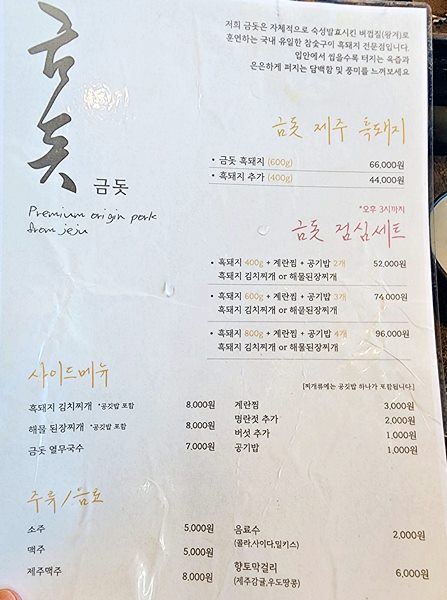 금돗
금돗
Premium origin pork
from jeju
저희 금돗은 자체적으로 숙성발효시킨 벼껍질(왕겨)로
훈연하는 국내 유일한 참숯구이 흑돼지 전문점입니다.
입안에서 씹을수록 터지는 육즙과
은은하게 퍼지는 담백함 및 풍미를 느껴보세요
금돗 제주 흑돼지
• 금돗 흑돼지 (600g) 66,000원
• 흑돼지 추가 (400g) 44,000원
*오후 3시까지
금돗 점심세트
• 흑돼지 400g + 계란찜 + 공기밥 2개 52,000원
흑돼지 김치찌개 or 해물된장찌개
• 흑돼지 600g + 계란찜 + 공기밥 3개 74,000원
흑돼지 김치찌개 or 해물된장찌개
• 흑돼지 800g + 계란찜 + 공기밥 4개 96,000원
흑돼지 김치찌개 or 해물된장찌개
사이드메뉴
[찌개류에는 공깃밥 하나가 포함됩니다.]
흑돼지 김치찌개 *공깃밥 포함 8,000원
해물 된장찌개 *공깃밥 포함 8,000원
금돗 열무국수 7,000원
계란찜 3,000원
명란젓 추가 2,000원
버섯 추가 1,000원
공기밥 1,000원
주류/음료
소주 5,000원
맥주 5,000원
제주맥주 8,000원
음료수 2,000원
(콜라,사이다,밀키스)
향토막걸리 6,000원
(제주감귤,우도땅콩)